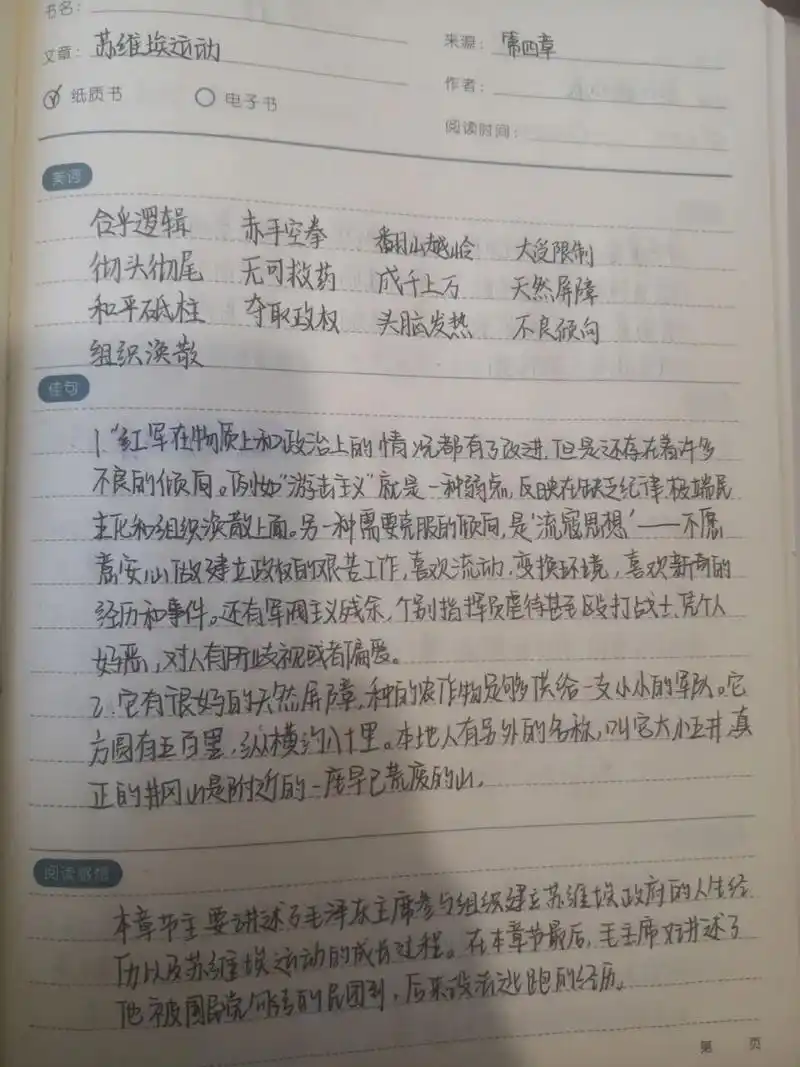 书名:
文章: 苏维埃运动
来源: 第四章
纸质书 电子书
作者:
阅读时间:
美词
合乎逻辑 赤手空拳 翻山越岭 大受限制
彻头彻尾 无可救药 成千上万 天然屏障
和平砥柱 夺取政权 头脑发热 不良倾向
组织涣散
佳句
1.“红军在物质上和政治上的情况都有了改进,但是还存在着许多
不良的倾向。例如“游击主义”就是一种弱点,反映在缺乏纪律、极端民
主化和组织涣散上面。另一种需要克服的倾向,是‘流寇思想’——不愿
意安心做建立政权的艰苦工作,喜欢流动,变换环境,喜欢新奇的
经历和事件。还有军阀主义残余,个别指挥员虐待甚至殴打战士、凭个人
好恶,对人有所歧视或者偏爱。
2.它有很好的天然屏障,种的农作物足够供给一支小小的军队。它
方圆有五百里,纵横约八十里。本地人有另外的名称,叫它大小五井,真
正的井冈山是附近的一座早已荒废的山。
阅读感想
本章节主要讲述了毛泽东主席参与组织建立苏维埃政府的人生经
历以及苏维埃运动的成长过程。在本章节最后,毛主席又讲述了
他被国民党勾结的民团到,后来设法逃跑的经历。
第 页